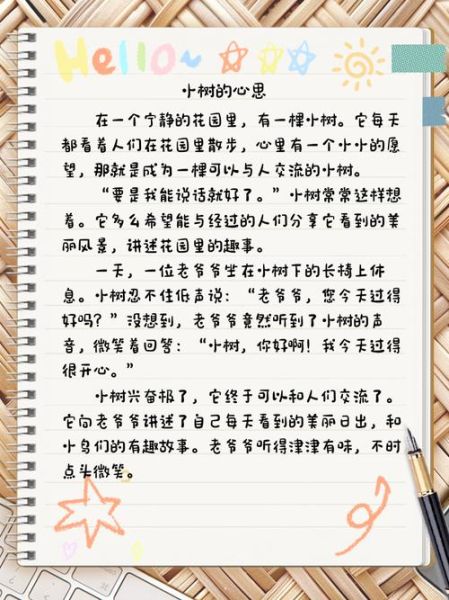 Hello~
小树的心思
在一个宁静的花园里，有一棵小树。它每天
都看着人们在花园里散步，心里有一个小小的愿
望，那就是成为一棵可以与人交流的小树。
“要是我能说话就好了。”小树常常这样想
着。它多么希望能与经过的人们分享它看到的美
丽风景，讲述花园里的趣事。
一天，一位老爷爷坐在小树下的长椅上休
息。小树忍不住低声说：“老爷爷，您今天过得
好吗？”没想到，老爷爷竟然听到了小树的声
音，微笑着回答：“小树，你好啊！我今天过得
很开心。”
小树兴奋极了，它终于可以和人们交流了。
它向老爷爷讲述了自己每天看到的美丽日出，和
小鸟们的有趣故事。老爷爷听得津津有味，不时
点头微笑。